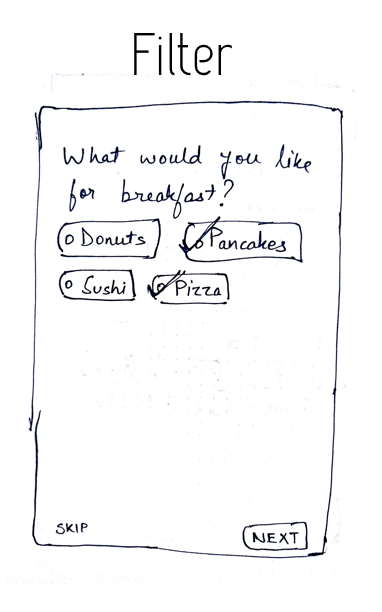 Filter
What would you like
for breakfast?
Donuts Pancakes
Sushi Pizza
SKIP NEXT